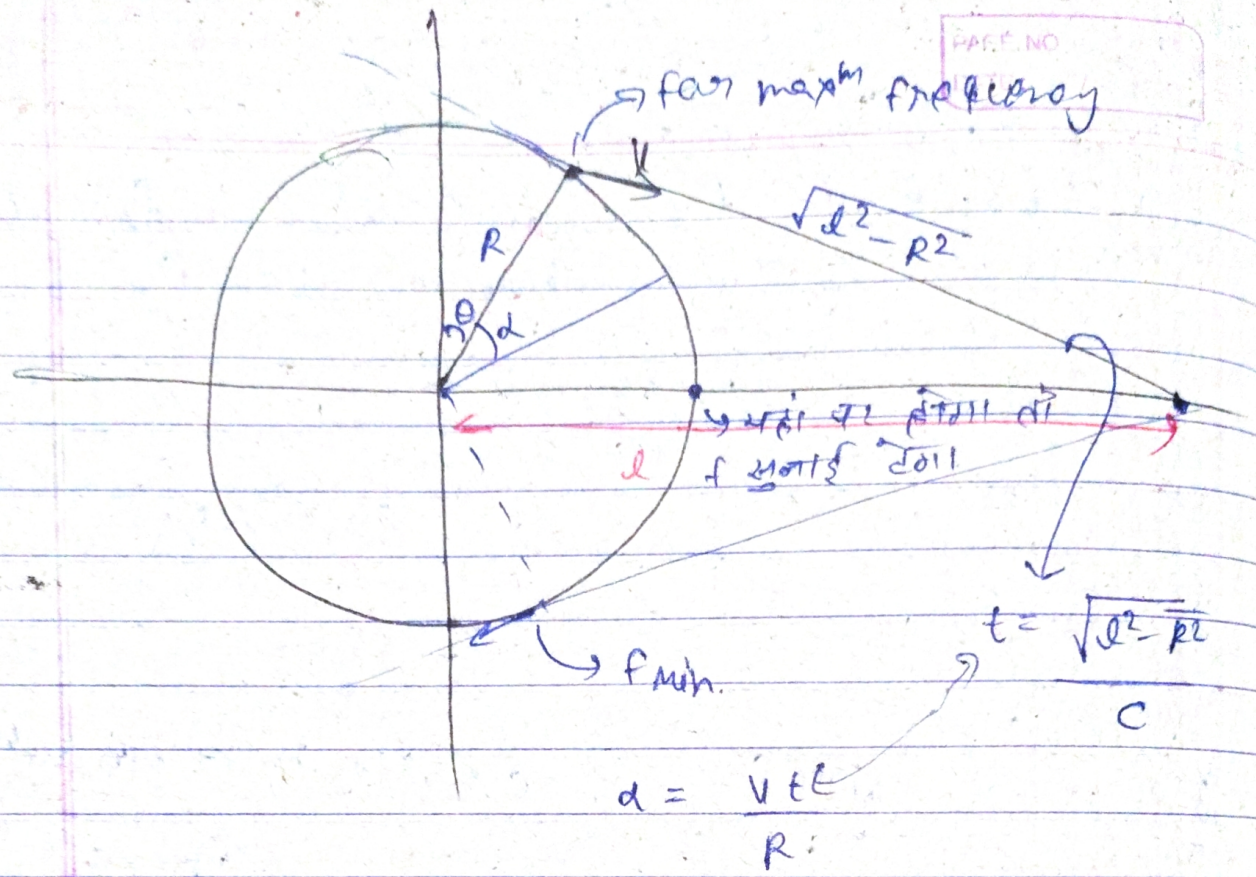 PAGE NO
for maxᵐ frequency
V
√l² - R²
R
θ
α
यहां पर होगा तो
l
f सुनाई देगा
t = √l² - R² / C
f min.
α = V t / R